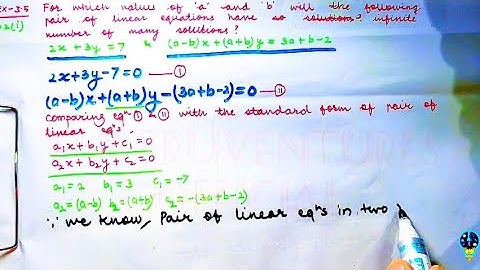 EX-3.5
For which values of 'a' and 'b' will the following
pair of linear equations have so solutions? infinite
number of many solutions?
2x + 3y = 7 & (a-b)x + (a+b)y = 3a+b-2
2x+3y-7=0 — I
(a-b)x+(a+b)y-(3a+b-2)=0 — II
Comparing eqⁿ I & II with the standard form of pair of
linear eqⁿs.
a₁x + b₁y + c₁ = 0
a₂x + b₂y + c₂ = 0
a₁ = 2 b₁ = 3 c₁ = -7
a₂ = (a-b) b₂ = (a+b) c₂ = -(3a+b-2)
∵ we know, Pair of linear eqⁿs in two